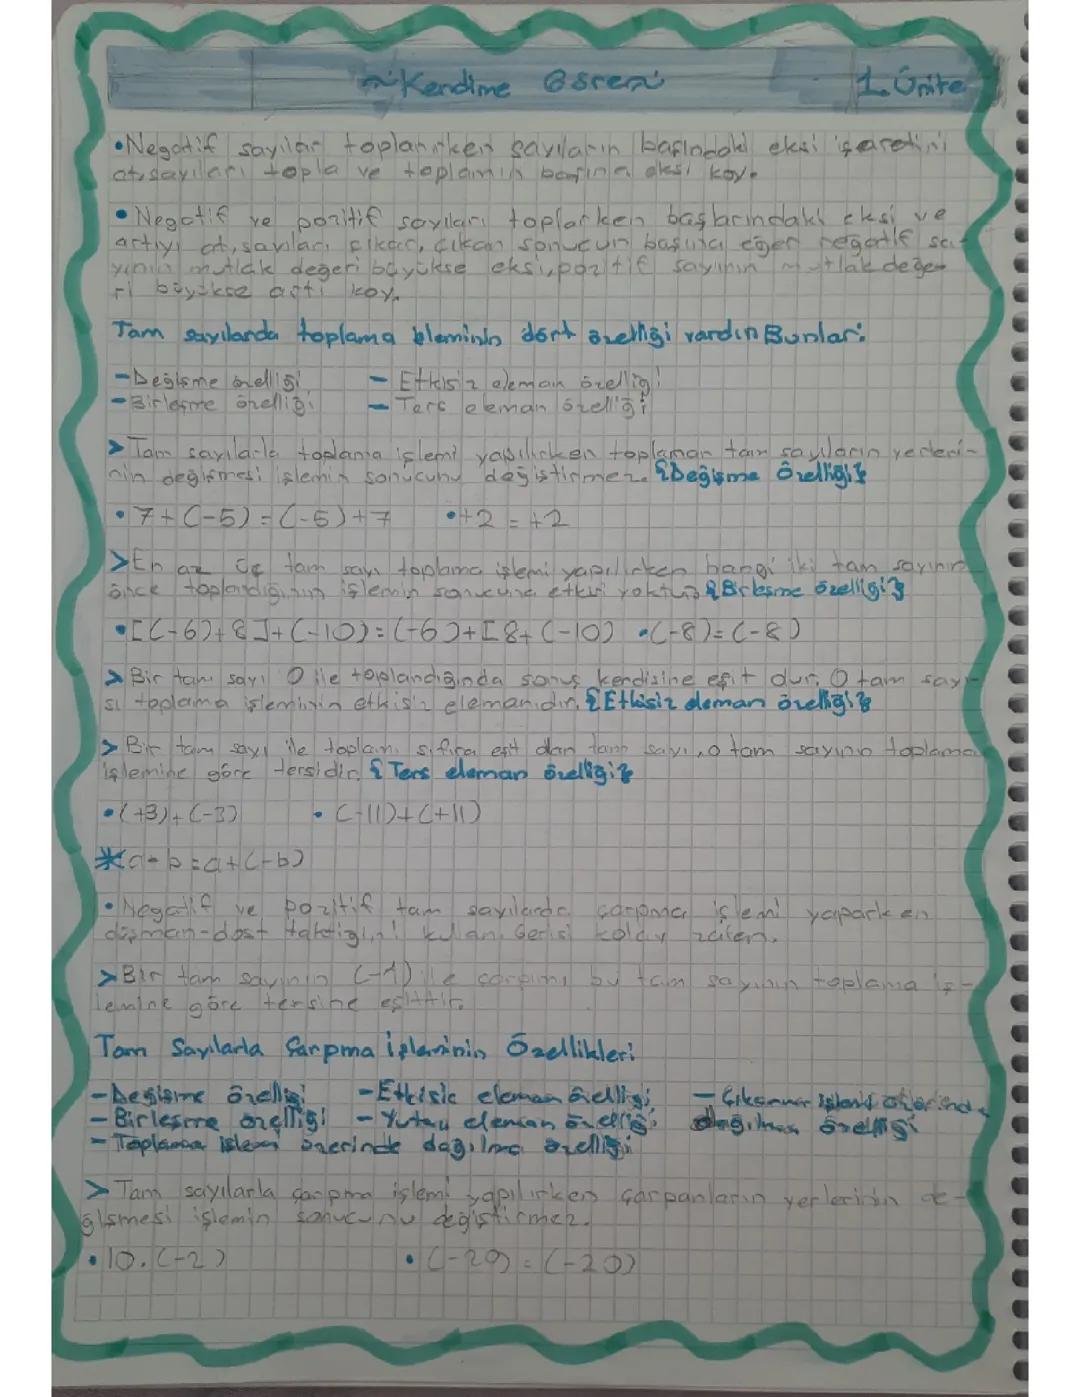 ~Kendime Göre~ 1.Ünite
•Negatif sayıları toplanırken sayıların başındaki eksi işaretini
at, sayıları topla ve toplamın başına eksi koy.
•Negatif ve pozitif sayıları toplarken başlarındaki eksi ve
artıyı at, sayıları çıkar, çıkan sonucun başına eğer negatif sa-
yının mutlak değeri büyükse eksi, pozitif sayının mutlak değe-
ri büyükse artı koy.
Tam sayılarda toplama işleminin dört özelliği vardır. Bunlar:
-Değişme özelliği -Etkisiz eleman özelliği
-Birleşme özelliği -Ters eleman özelliği
>Tam sayılarla toplama işlemi yapılırken toplanan tam sayıların yerleri-
nin değişmesi işlemin sonucunu değiştirmez. {Değişme Özelliği}
•7+(-5)=(-5)+7 •+2=+2
>En az üç tam sayı toplama işlemi yapılırken hangi iki tam sayının
önce toplandığının işlemin sonucuna etkisi yoktur. {Birleşme özelliği}
•[(-6)+8]+(-10)=(-6)+[8+(-10) •(-8)=(-8)
>Bir tam sayı 0 ile toplandığında sonuç kendisine eşit dur. 0 tam sayı-
sı toplama işleminin etkisiz elemanıdır. {Etkisiz eleman özelliği}
>Bir tam sayı ile toplamı sıfıra eşit olan tam sayı, o tam sayının toplama
işlemine göre tersidir. {Ters eleman özelliği}
•(+3)+(-3) •(-11)+(+11)
*a-b=a+(-b)
•Negatif ve pozitif tam sayılarda çarpma işlemi yaparken
düşman-dost taktiğini kullan. Gerisi kolay zaten.
>Bir tam sayının (-1) ile çarpımı bu tam sayının toplama iş-
lemine göre tersine eşittir.
Tam Sayılarla Çarpma İşleminin Özellikleri
-Değişme özelliği -Etkisiz eleman özelliği -Çıkarma işlemi üzerinde
-Birleşme özelliği -Yutan eleman özelliği dağılma özelliği
-Toplama işlemi üzerinde dağılma özelliği
>Tam sayılarla çarpma işlemi yapılırken çarpanların yerlerinin de-
ğişmesi işlemin sonucunu değiştirmez.
•10.(-2) •(-20)=(-20)